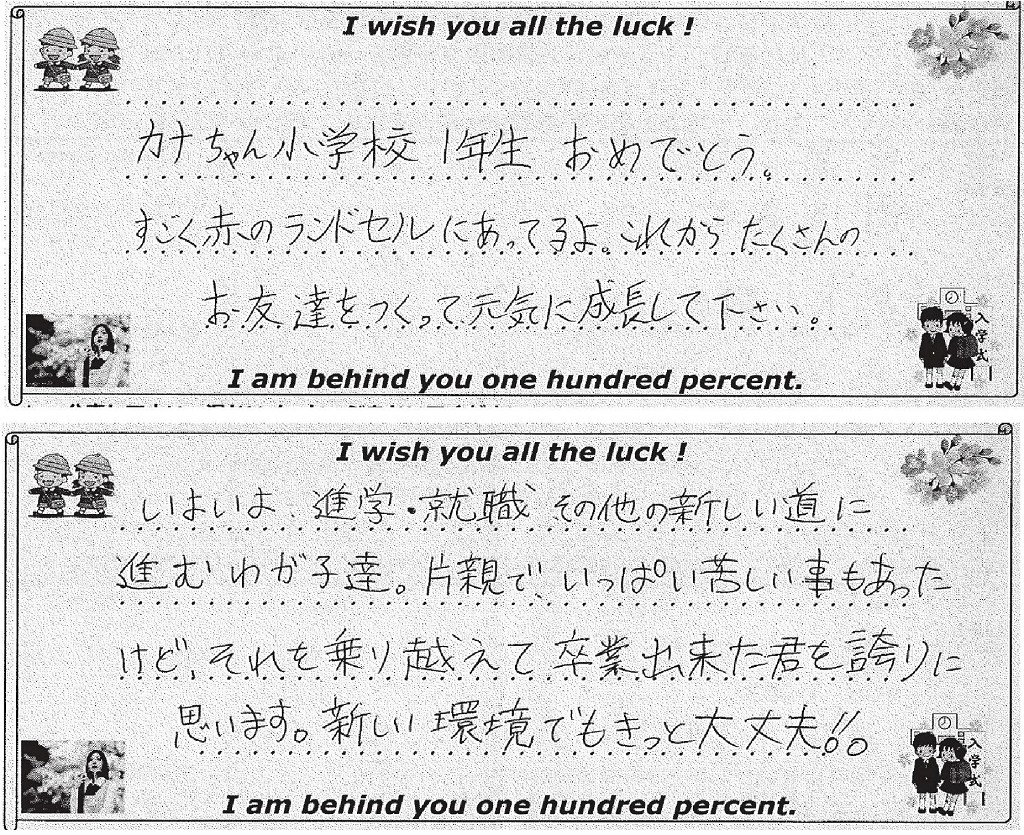 I wish you all the luck !
カナちゃん小学校 1年生 おめでとう。
すごく赤のランドセルにあってるよ。これから たくさんの
お友達をつくって元気に成長して下さい。
入学式
I am behind you one hundred percent.
I wish you all the luck !
いよいよ、進学・就職 その他の新しい道に
進むわが子達。片親で、いっぱい苦しい事もあった
けど、それを乗り越えて卒業出来た君を誇りに
思います。新しい環境でもきっと大丈夫!!。
入学式
I am behind you one hundred percent.